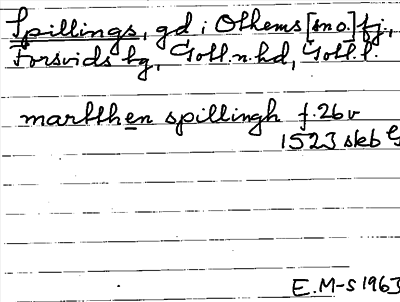 Spillings, gd i Othems [sno.] tj.,
Forsvids tg, Gotl. n. hd, Gotl. l.
martthen spillingh f. 26 v
1523 skb G
E. M-s 1963